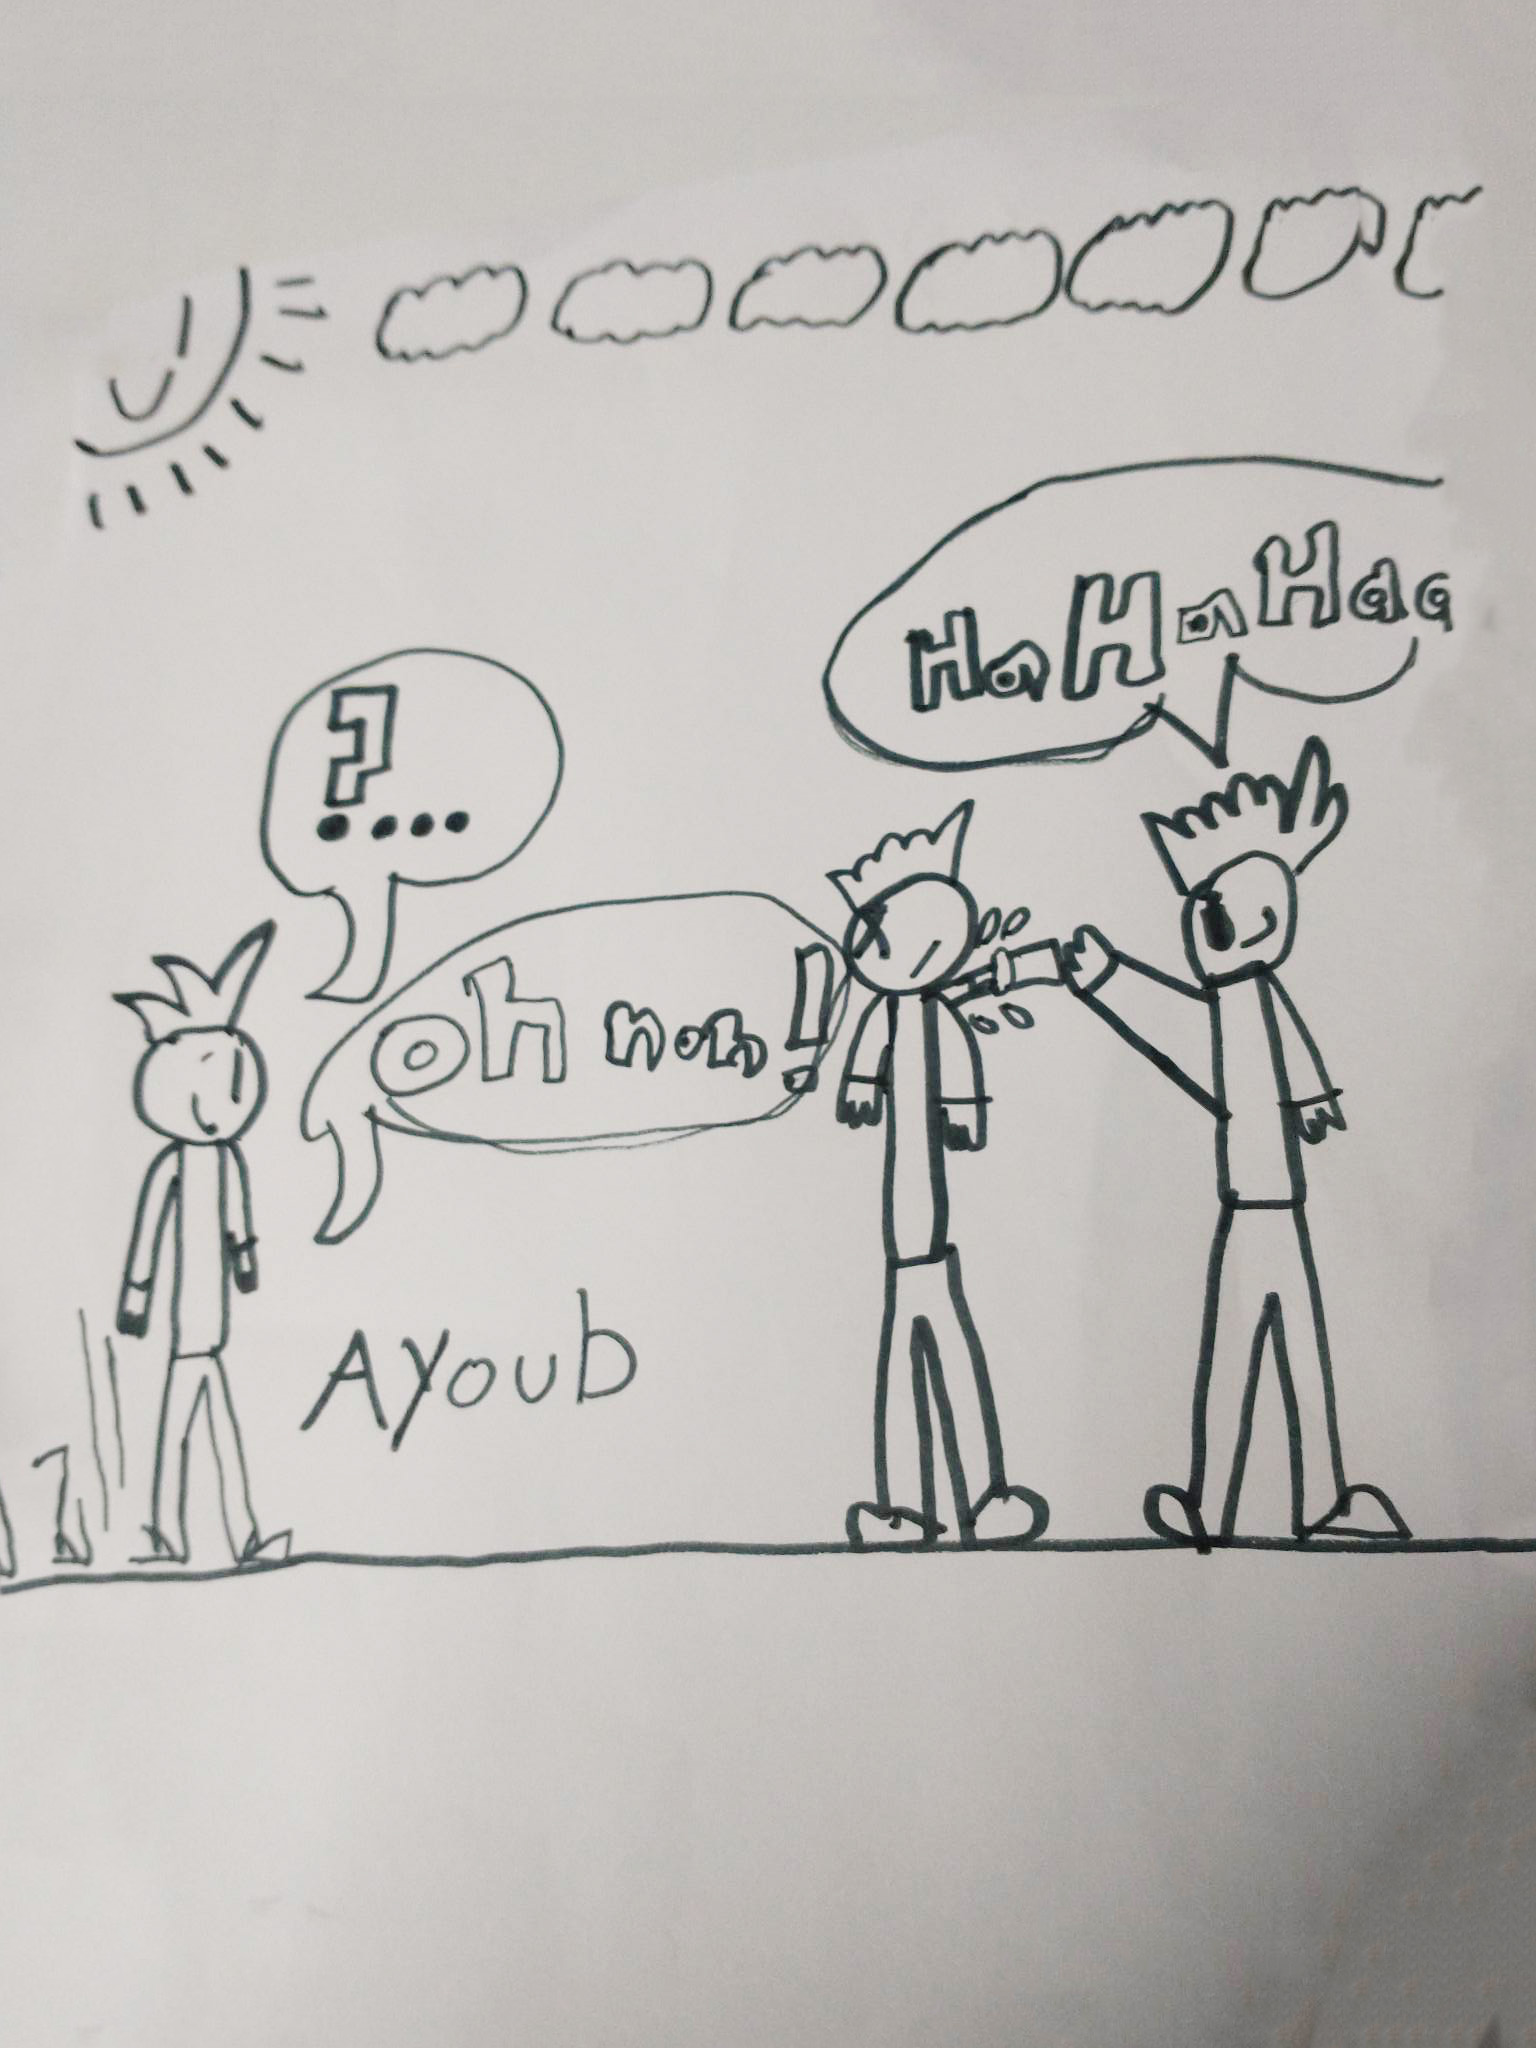 HaHaHaa
?....
oh non!
Ayoub